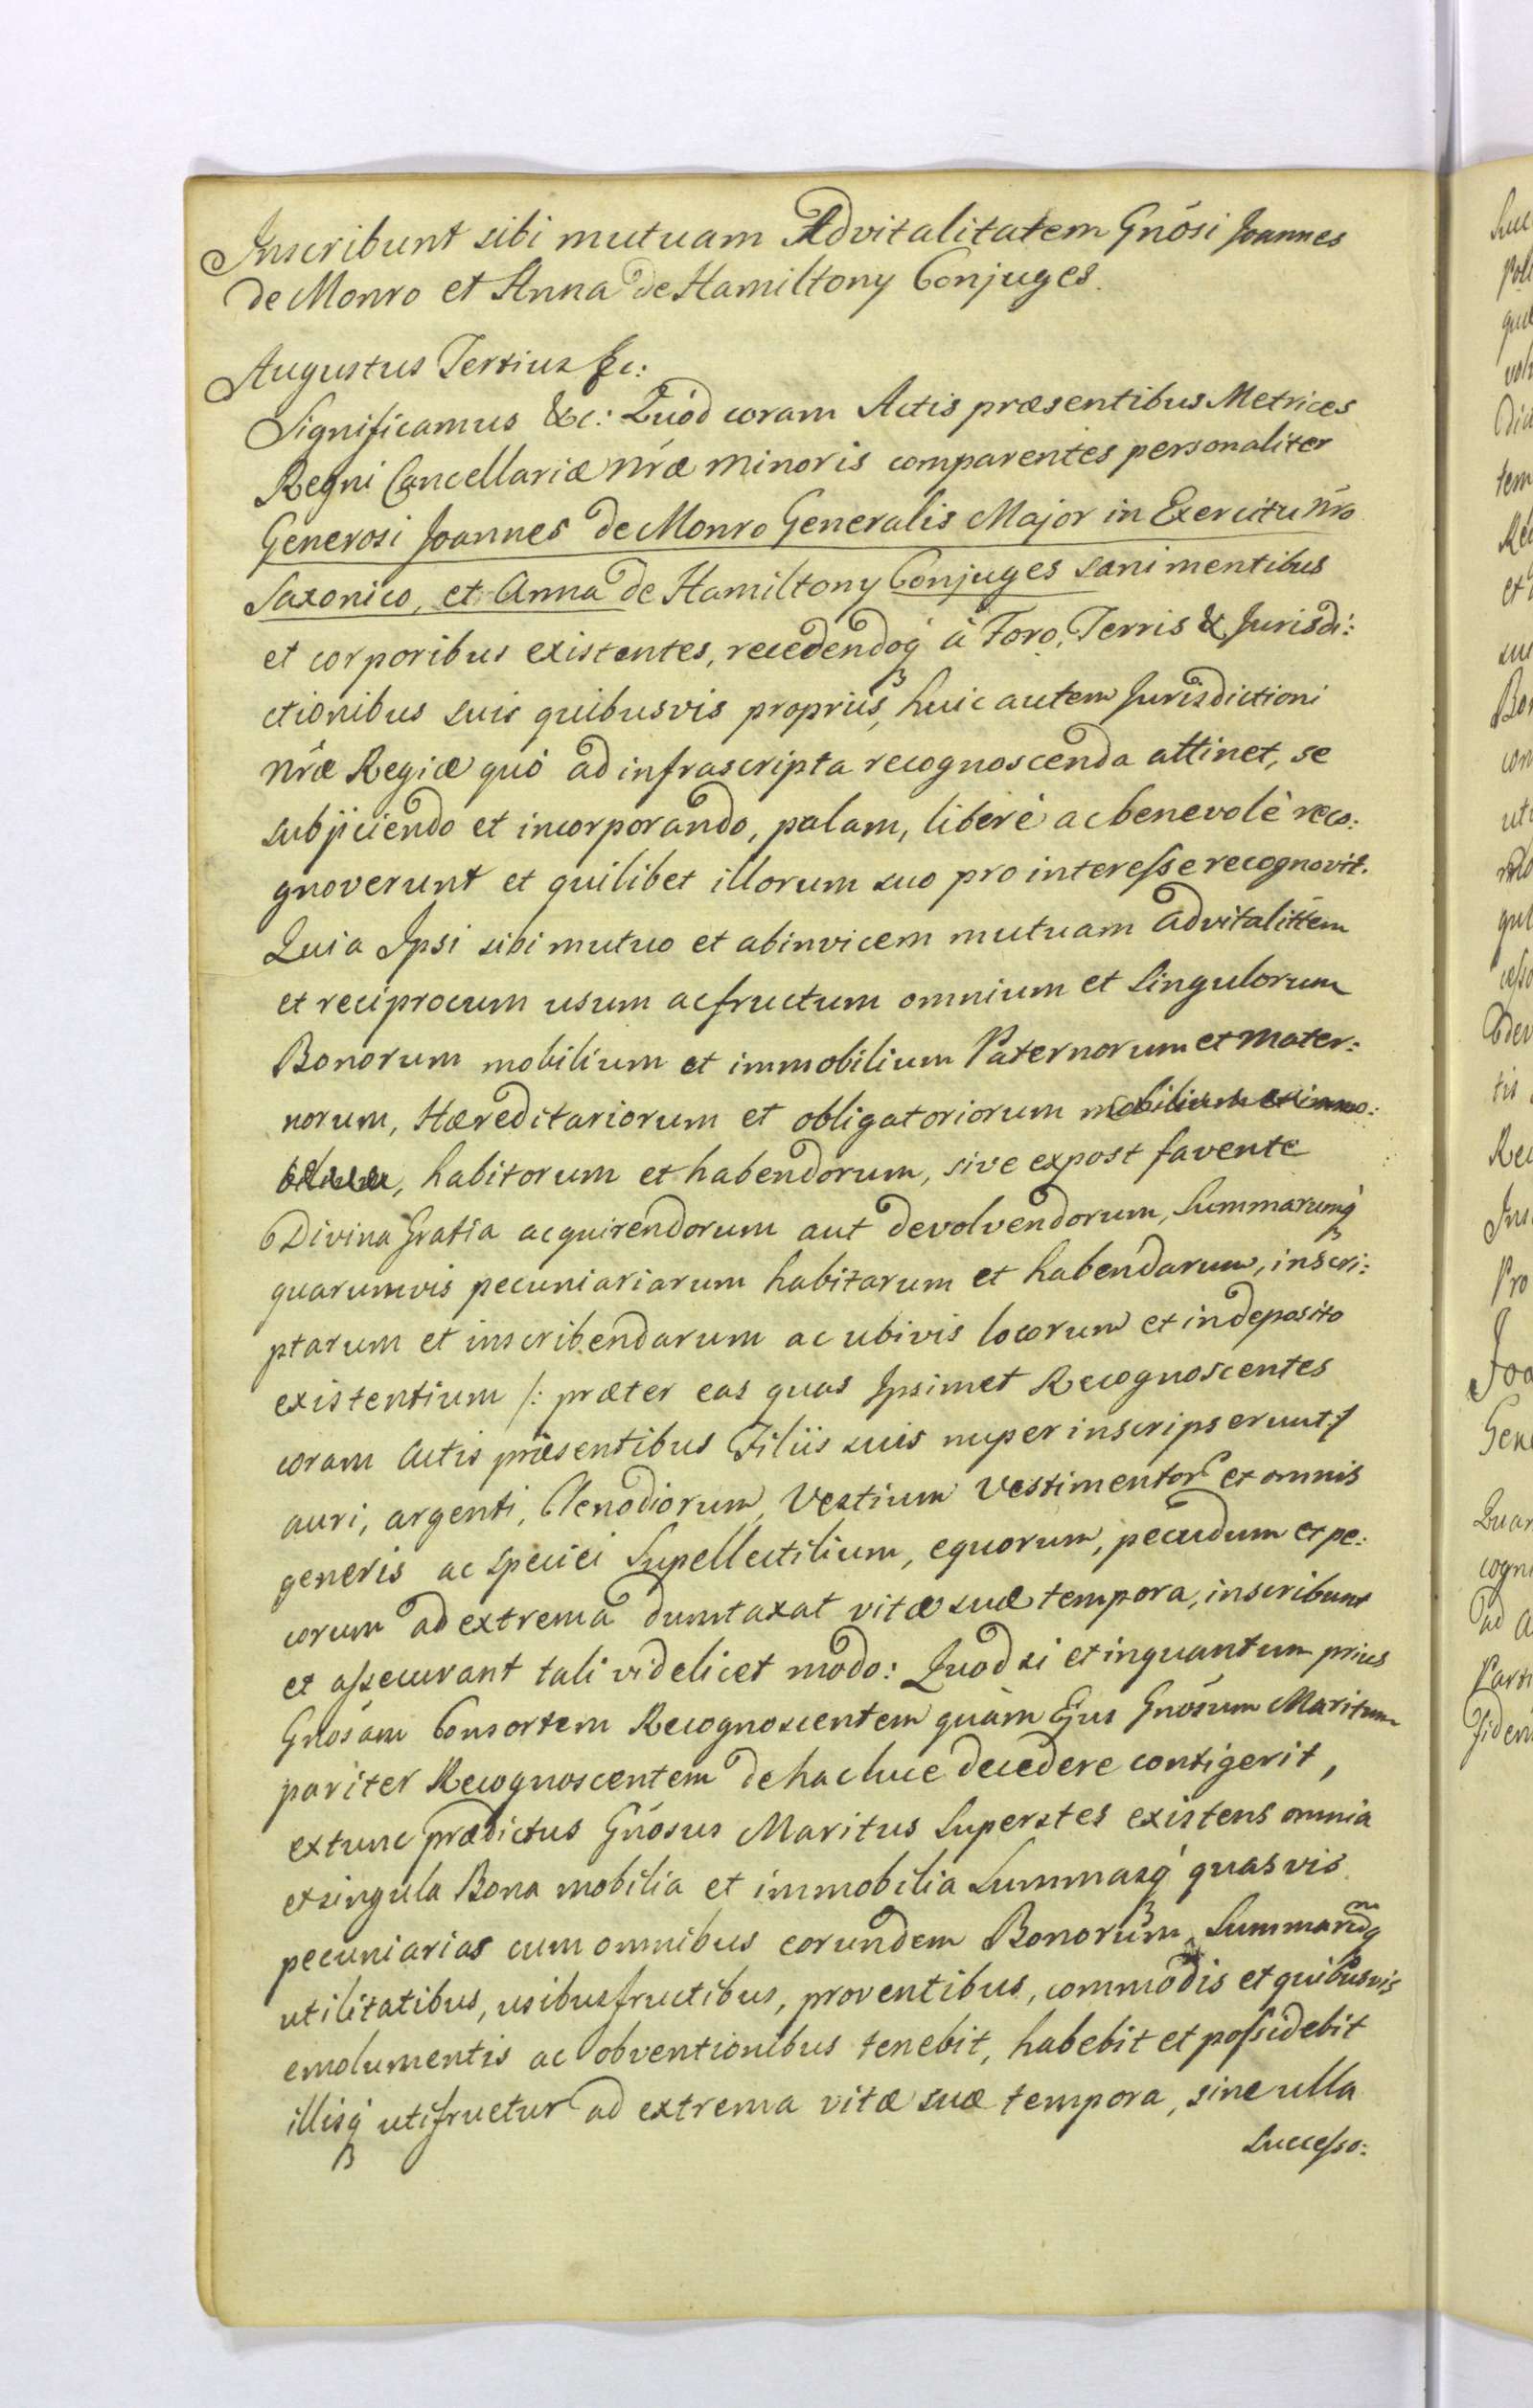 Inscribunt sibi mutuam Advitalitatem Gnõsi Joannes
de Monro et Anna de Hamiltony Conjuges.
Augustus Tertius &c:
Significamus &c: Quòd coram Actis præsentibus Metrices
Regni Cancellariæ nr̃æ minoris comparentes personaliter
Generosi Joannes de Monro Generalis Major in Exercitu nr̃o
Saxonico, et Anna de Hamiltony Conjuges sani mentibus
et corporibus existentes, recedendoq́ à Foro, Terris & Jurisdi:
ctionibus suis quibusvis proprijs, huic autem Jurisdictioni
nr̃æ Regiæ quò ad infrascripta recognoscenda attinet, se
subjiciendo et incorporando, palam, liberè ac benevolè reco:
gnoverunt et quilibet illorum suo pro interesse recognovit.
Quia Ipsi sibi mutuo et abinvicem mutuam advitalittem
et reciprocum usum ac fructum omnium et singulorum
Bonorum mobilium et immobilium Paternorum et Mater:
norum, Hæreditariorum et obligatoriorum mobilium et immo:
bilium, habitorum et habendorum, sive expost favente
Divina Gratia acquirendorum aut devolvendorum, Summarumq́
quarumvis pecuniariarum habitarum et habendarum, inscri:
ptarum et inscribendarum ac ubivis locorum et in deposito
existentium /: præter eas quas Ipsimet Recognoscentes
coram Actis præsentibus Filiis suis nuper inscripserunt :/
auri, argenti, Clenodiorum, Vestium Vestimentor et omnis
generis ac speciei Supellectilium, equorum, pecudum et pe:
corum ad extrema duntaxat vitæ suæ tempora, inscribunt
et assecurant tali videlicet modo: Quod si et inquantum prius
Gnõsam Consortem Recognoscentem quàm Ejus Gnõsum Maritum
pariter Recognoscentem de hac luce decedere contigerit,
extunc prædictus Gnõsus Maritus Superstes existens omnia
et singula Bona mobilia et immobilia Summasq́ quasvis
pecuniarias cum omnibus eorundem Bonorum, Summarumq
utilitatibus, usibusfructibus, proventibus, commodis et quibusvis
emolumentis ac obventionibus tenebit, habebit et possidebit
illisq́ utifruetur ad extrema vitæ suæ tempora, sine ulla
Successo: